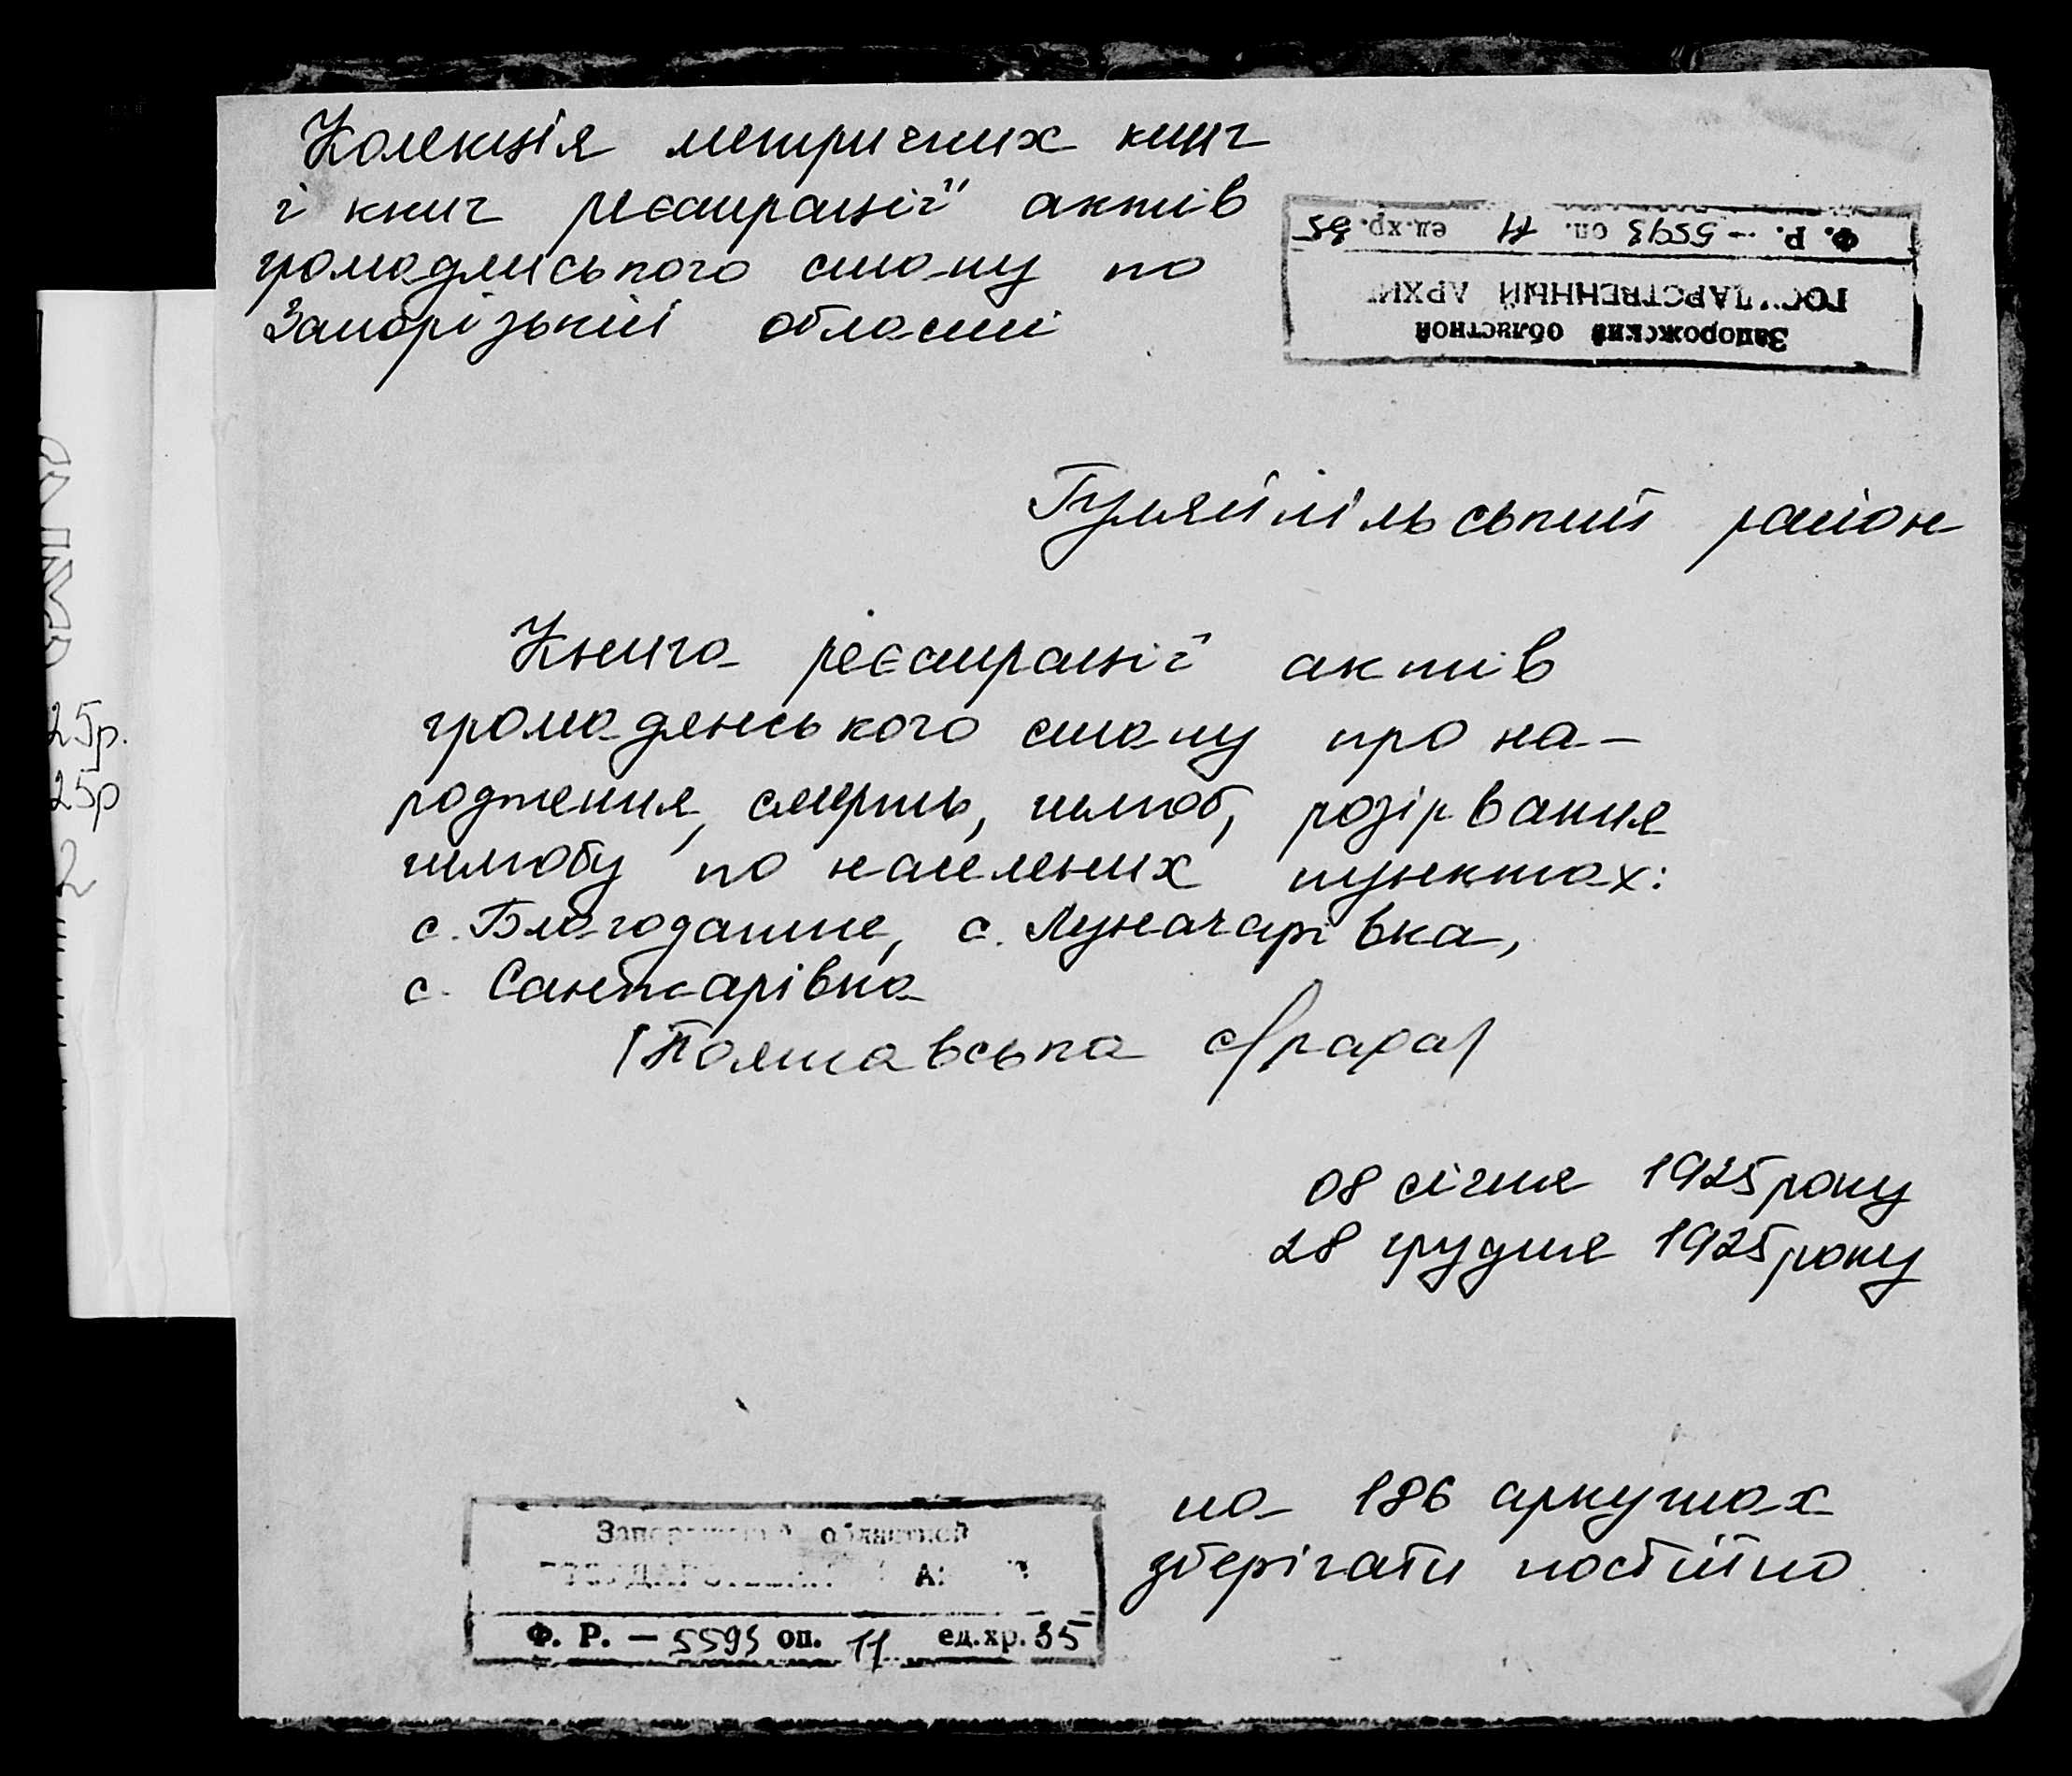 Колекція метричних книг
і книг реєстрації актів
громадянського стану по
Запорізькій області
Запорожский областной
ГОСУДАРСТВЕННЫЙ АРХИВ
Ф. Р. — 5593 оп. 11 ед.хр. 35
Гуляйпільський район
Книга реєстрації актів
громадянського стану про на-
родження, смерть, шлюб, розірвання
шлюбу по населених пунктах:
с. Благодатне, с. Луначарівка,
с. Санжарівка
(Полтавська с/рада)
08 січня 1925 року
28 грудня 1925 року
на 186 аркушах
зберігати постійно
Запорожский областной
ГОСУДАРСТВЕННЫЙ АРХИВ
Ф. Р. — 5593 оп. 11 ед.хр. 35
25р.
25р
2